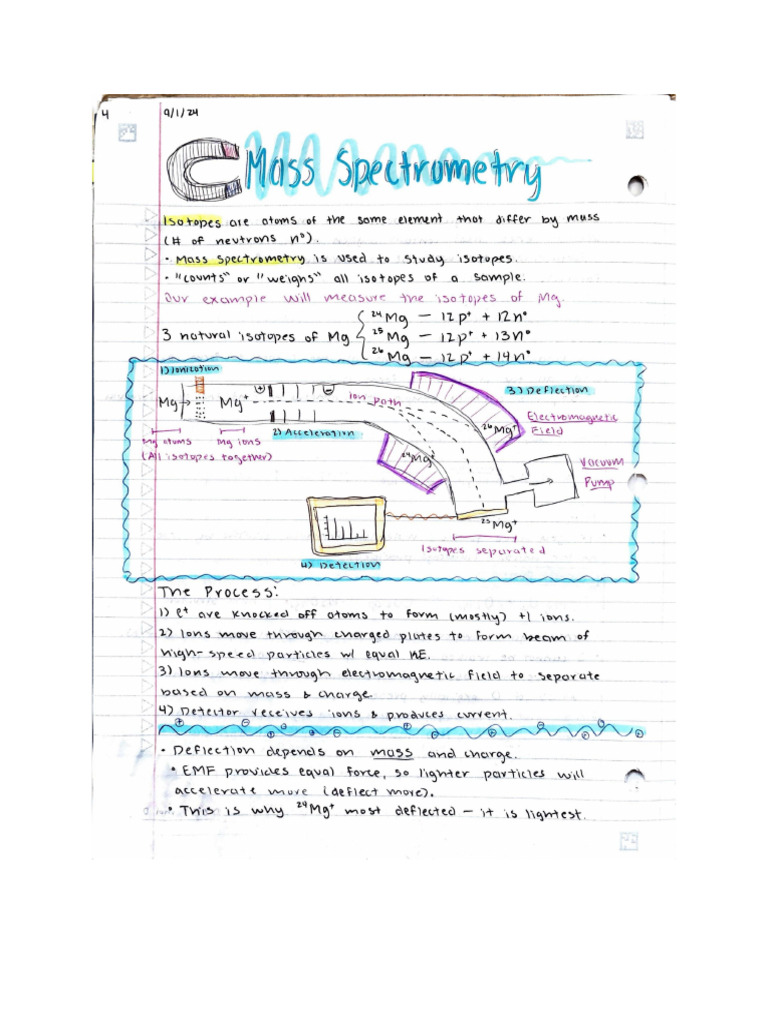 4 9/1/24
Mass Spectrometry
Isotopes are atoms of the same element that differ by mass
(# of neutrons n°).
• Mass spectrometry is used to study isotopes.
• "counts" or "weighs" all isotopes of a sample.
Our example will measure the isotopes of Mg.
3 natural isotopes of Mg
²⁴Mg — 12p⁺ + 12n°
²⁵Mg — 12p⁺ + 13n°
²⁶Mg — 12p⁺ + 14n°
1) Ionization
3) Deflection
Mg
Mg⁺
+
−
ion path
Electromagnetic
Field
²⁶Mg⁺
2) Acceleration
Mg atoms
Mg ions
(All isotopes together)
²⁴Mg⁺
Vacuum
Pump
²⁵Mg⁺
Isotopes separated
4) Detection
The Process:
1) e⁺ are knocked off atoms to form (mostly) +1 ions.
2) Ions move through charged plates to form beam of
high-speed particles w/ equal KE.
3) Ions move through electromagnetic field to separate
based on mass & charge.
4) Detector receives ions & produces current.
• Deflection depends on mass and charge.
• EMF provides equal force, so lighter particles will
accelerate more (deflect more).
• This is why ²⁴Mg⁺ most deflected — it is lightest.